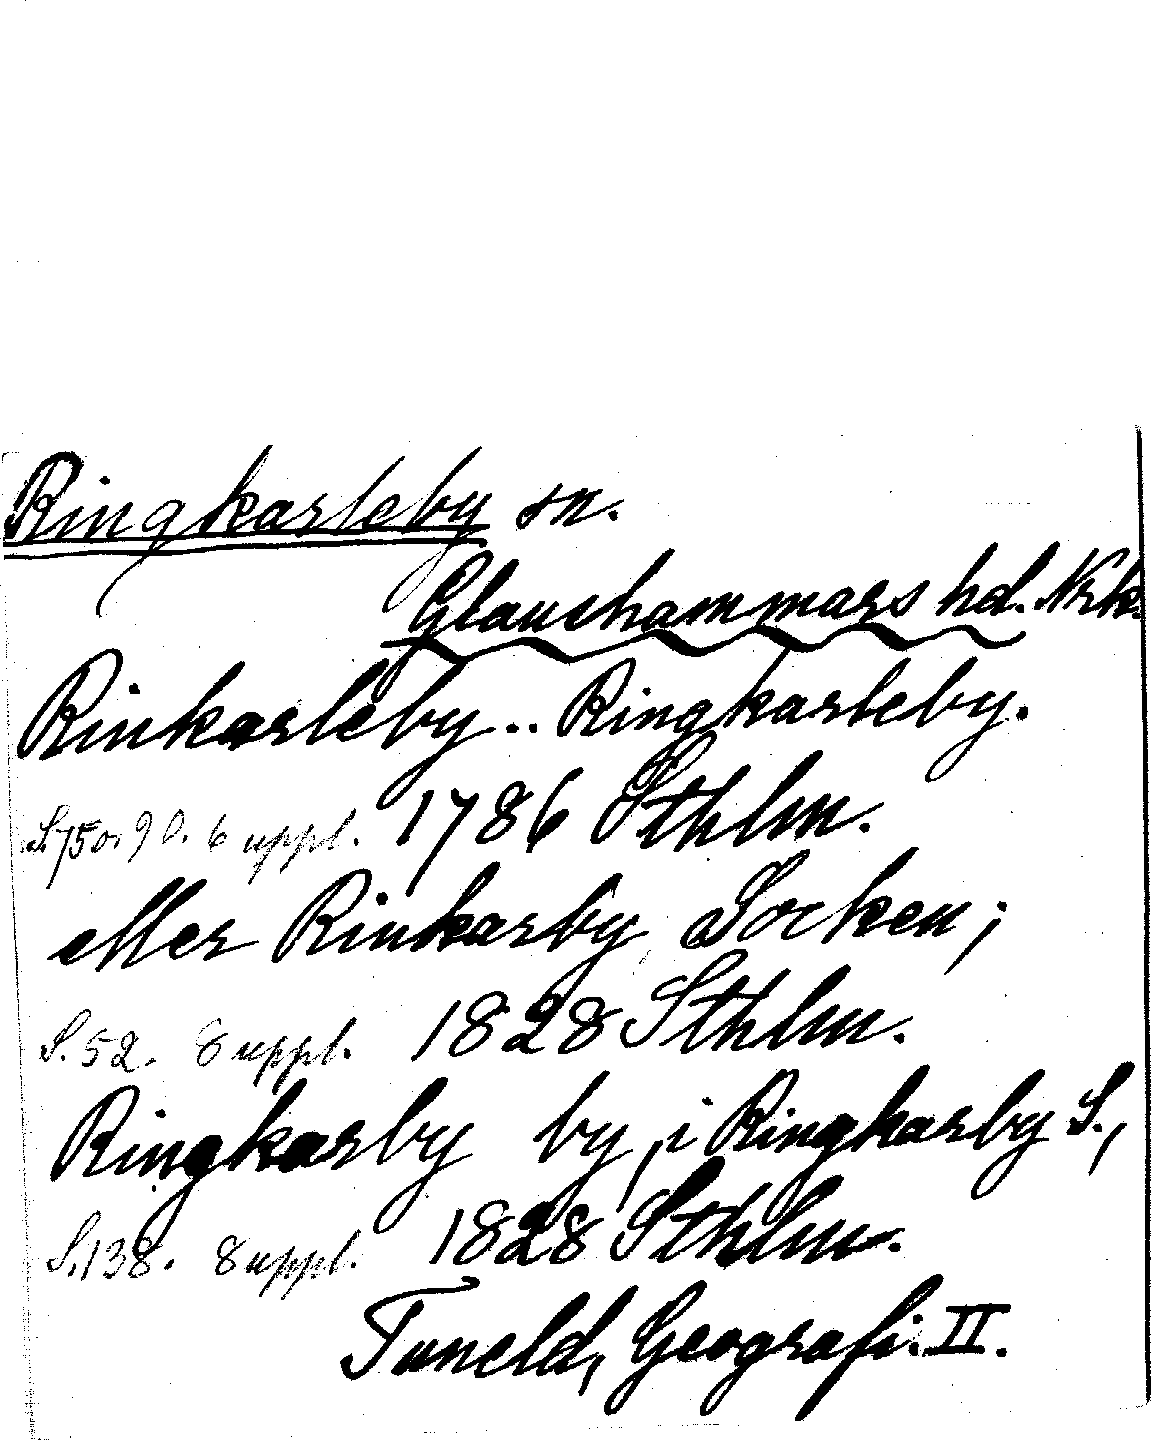 Ringkarleby sn.
Glanshammars hd. Nrk.
Rinkarleby.. Ringkarleby.
S. 75 o. 90. 6 uppl. 1786 Sthlm.
eller Rinkarby Socken;
S. 52. 8 uppl. 1828 Sthlm.
Ringkarby by, i Ringkarby S.,
S. 138. 8 uppl. 1828 Sthlm.
Tuneld, Geografi. II.